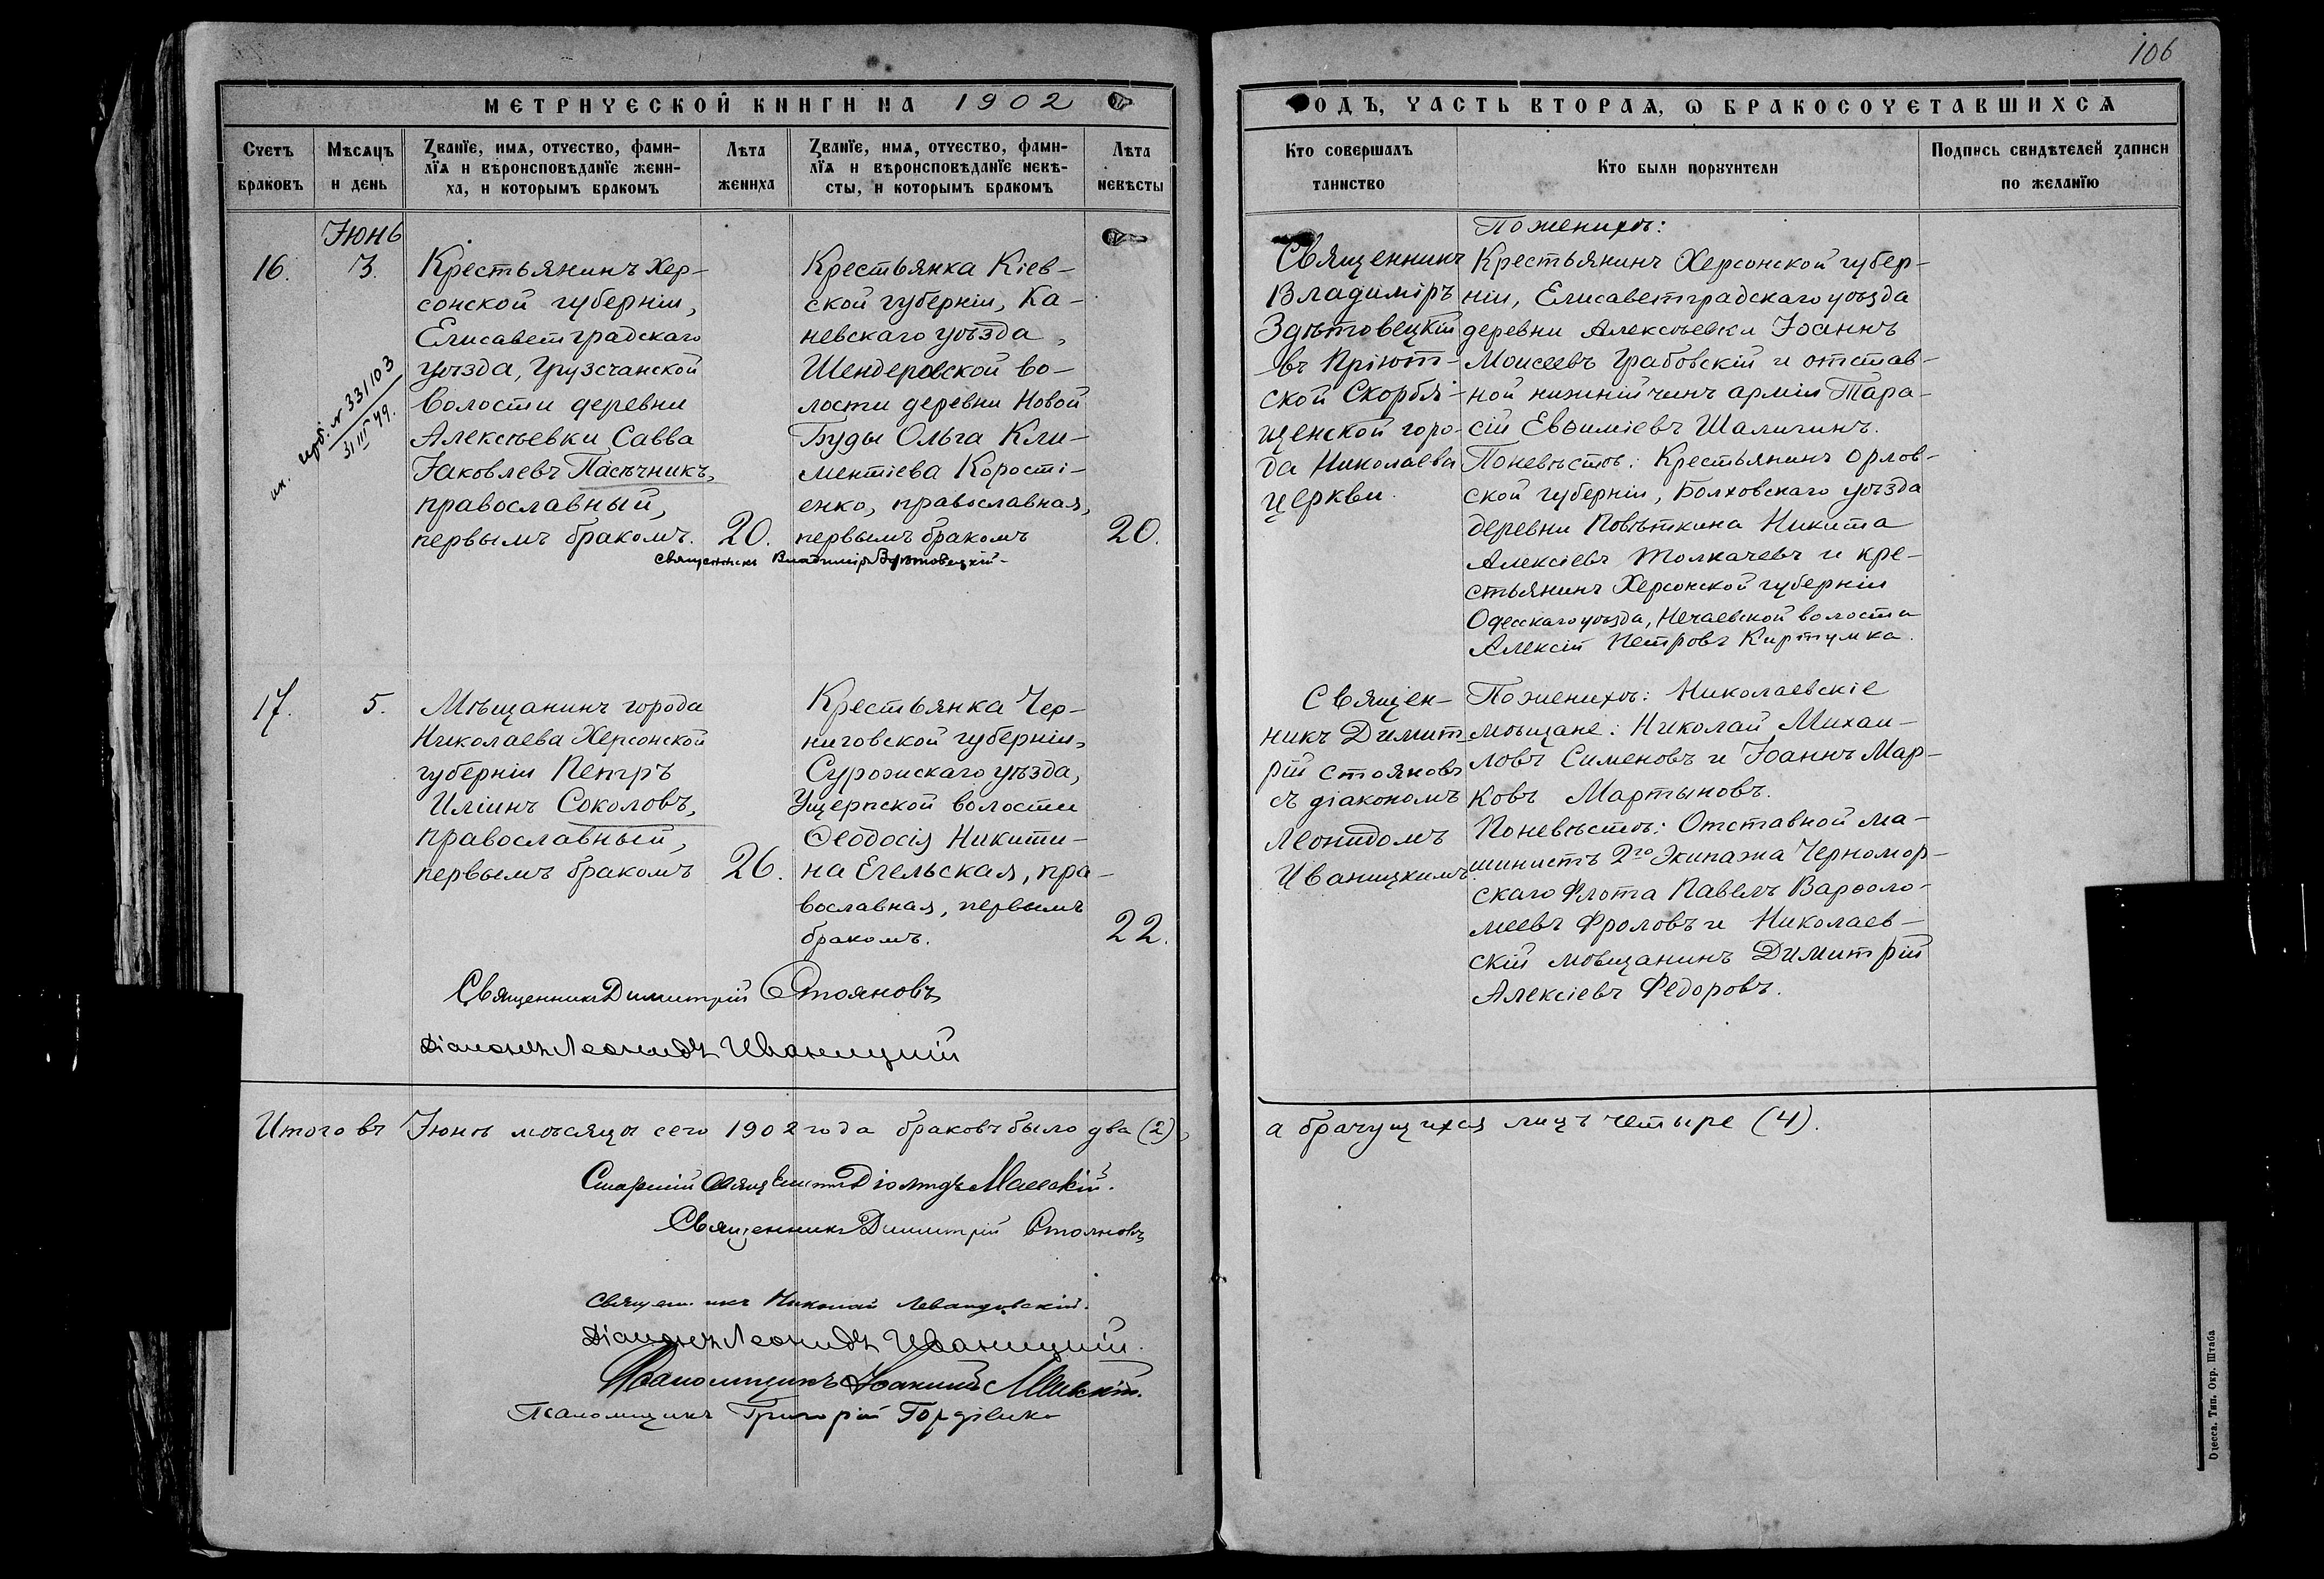 106
МЕТРИЧЕСКОЙ КНИГИ НА 1902
ГОДЪ, ЧАСТЬ ВТОРАѦ, Ѡ БРАКОСОЧЕТАВШИХСѦ
Счетъ браковъ
Мѣсѧцъ и день
Званїе, имѧ, отчество, фами-
лїѧ и вѣроисповѣданїе жени-
ха, и которымъ бракомъ
Лѣта жениха
Званїе, имѧ, отчество, фами-
лїѧ и вѣроисповѣданїе невѣ-
сты, и которымъ бракомъ
Лѣта невѣсты
Кто совершалъ таинство
Кто были порꙋчители
Подпись свидѣтелей записи
по желанїю
Іюнь
16. 3.
№ 331103
31 III 49.
Крестьянинъ Хер-
сонской губерніи,
Елисаветградскаго
уѣзда, Грузсчанской
волости деревни
Алексѣевки Савва
Іаковлевъ Пасѣчникъ,
православный,
первымъ бракомъ. 20.
Крестьянка Кіев-
ской губерніи, Ка-
невскаго уѣзда,
Шендеровской во-
лости деревни Новой
Буды Ольга Кли-
ментіева Корості-
енко, православная,
первымъ бракомъ 20.
Священникъ Владиміръ Здѣтовецкій
Священникъ
Владиміръ
Здѣтовецкій
въ Пріют-
ской Скорбя-
щенской горо-
да Николаева
церкви.
По женихѣ:
Крестьянинъ Херсонской губер-
ніи, Елисаветградскаго уѣзда
деревни Алексѣевки Іоаннъ
Моисеевъ Грабовскій и отстав-
ной нижній чинъ арміи Тара-
сій Евѳиміевъ Шалигинъ.
По невѣстѣ: Крестьянинъ Орлов-
ской губерніи, Болховскаго уѣзда
деревни Повѣткина Никита
Алексіевъ Толкачевъ и кре-
стьянинъ Херсонской губерніи
Одесскаго уѣзда, Нечаевской волости
Алексій Петровъ Киртумка.
17. 5.
Мѣщанинъ города
Николаева Херсонской
губерніи Петръ
Иліинъ Соколовъ,
православный,
первымъ бракомъ 26.
Крестьянка Чер-
ниговской губерніи,
Суражскаго уѣзда,
Ущерпской волости
Ѳеодосія Никити-
на Егельская, пра-
вославная, первымъ
бракомъ. 22.
Священникъ Димитрій Стояновъ
Діаконъ Леонидъ Иваницкій
Священ-
никъ Димит-
рій Стояновъ
съ діакономъ
Леонидомъ
Иваницкимъ
По женихѣ: Николаевскіе
мѣщане: Николай Михаи-
ловъ Сименовъ и Іоаннъ Мар-
ковъ Мартыновъ.
По невѣстѣ: Отставной ма-
шинистъ 2го Экипажа Черномор-
скаго Флота Павелъ Варѳоло-
меевъ Фроловъ и Николаев-
скій мѣщанинъ Димитрій
Алексіевъ Федоровъ.
Итого въ Іюнѣ мѣсяцѣ сего 1902 года браковъ было два (2),
а брачущихся лицъ четыре (4).
Старшій Священникъ
Священникъ Димитрій Стояновъ
Священникъ Николай Левандовскій.
Діаконъ Леонидъ Иваницкій.
Псаломщикъ Іоакимъ
Псаломщикъ Григорій Гордіенко
Одесса. Тип. Окр. Штаба